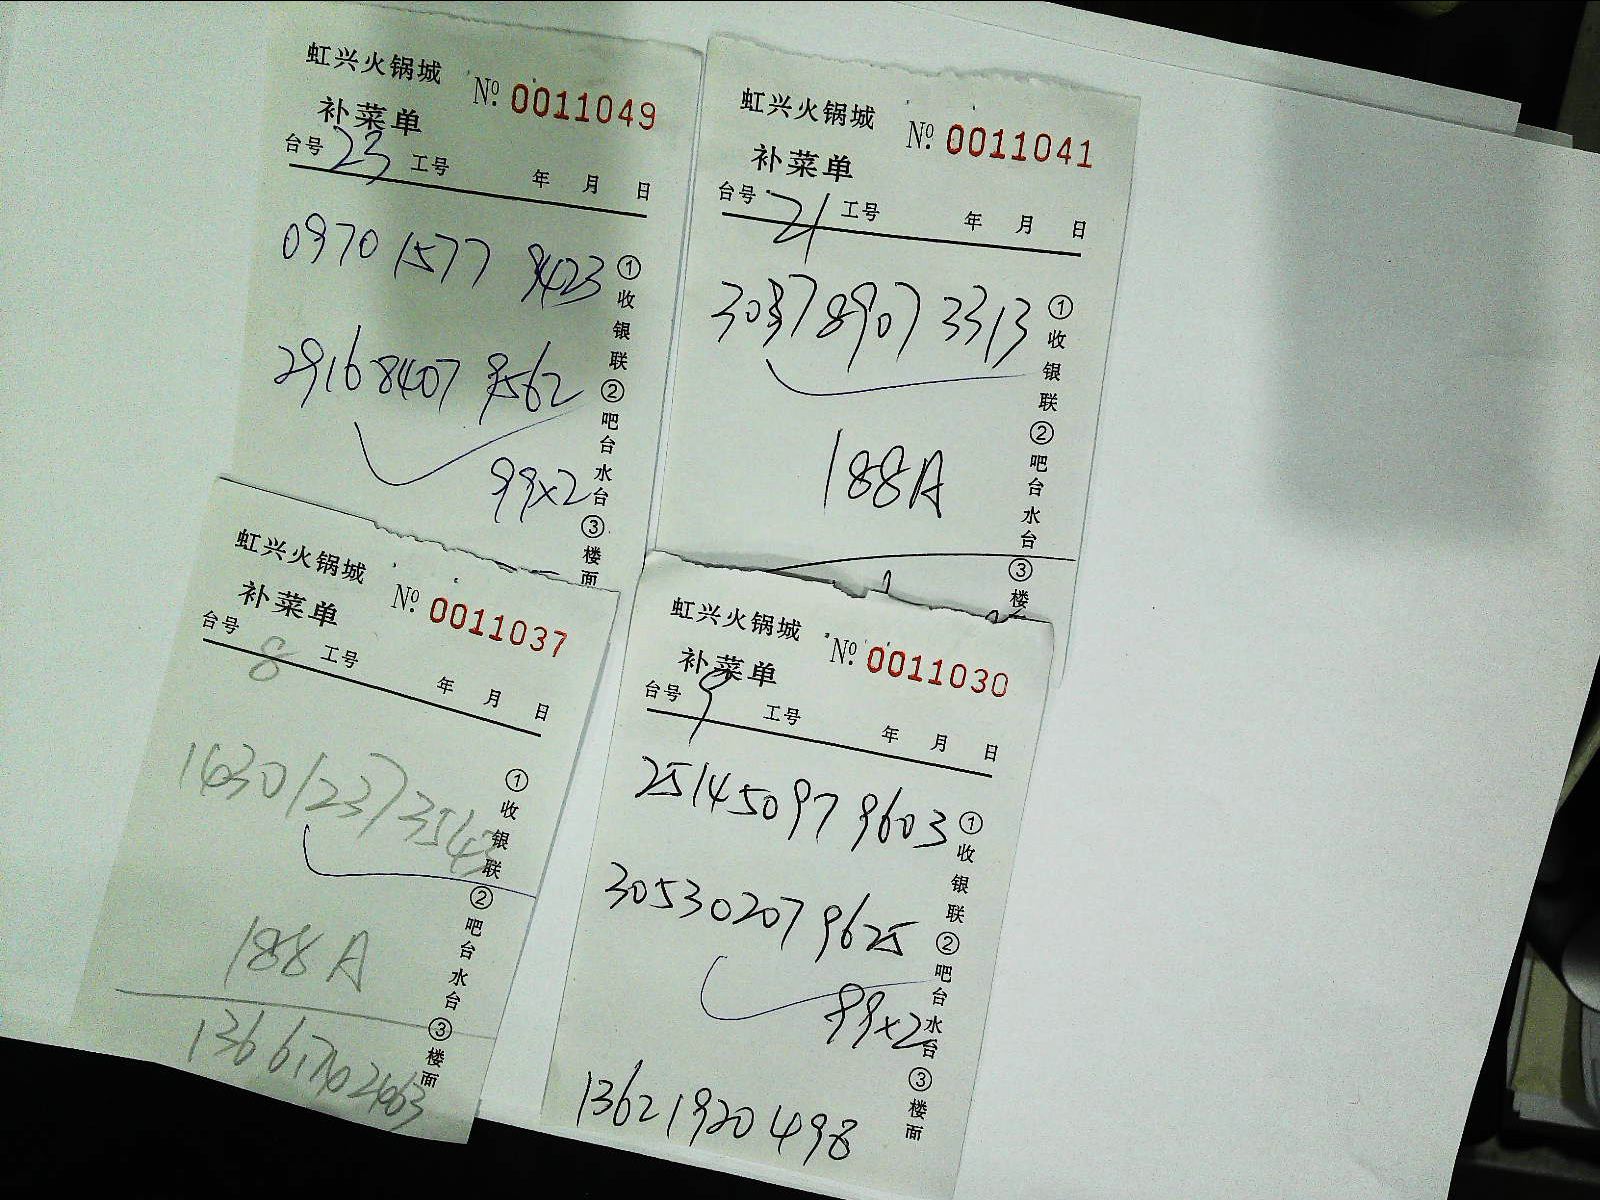 虹兴火锅城 № 0011049
补菜单
台号 23 工号 年 月 日
0970 1577 9423
2916 8407 9562
99x2
①收银联②吧台水台③楼面
虹兴火锅城 № 0011041
补菜单
台号 21 工号 年 月 日
3037 8907 3313
188A
①收银联②吧台水台③楼
虹兴火锅城 № 0011037
补菜单
台号 8 工号 年 月 日
1630 1237 3543
188A
①收银联②吧台水台③楼面
虹兴火锅城 № 0011030
补菜单
台号 9 工号 年 月 日
2514 5097 9603
3053 0207 9625
99x2
13621920498
①收银联②吧台水台③楼面